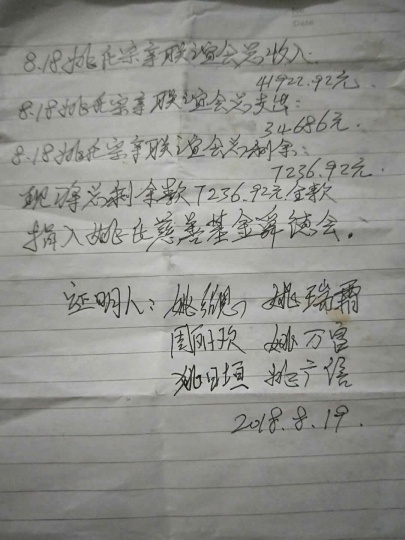 8.18姚氏宗亲联谊会总收入:
41922.92元.
8.18姚氏宗亲联谊会总支出:
34686元.
8.18姚氏宗亲联谊会总剩余:
7236.92元.
现将总剩余款7236.92元全款
捐入姚氏慈善基金舜德会.
证明人: 姚 姚瑞霜
周 欢 姚万富
姚日垣 姚广信
2018.8.19.